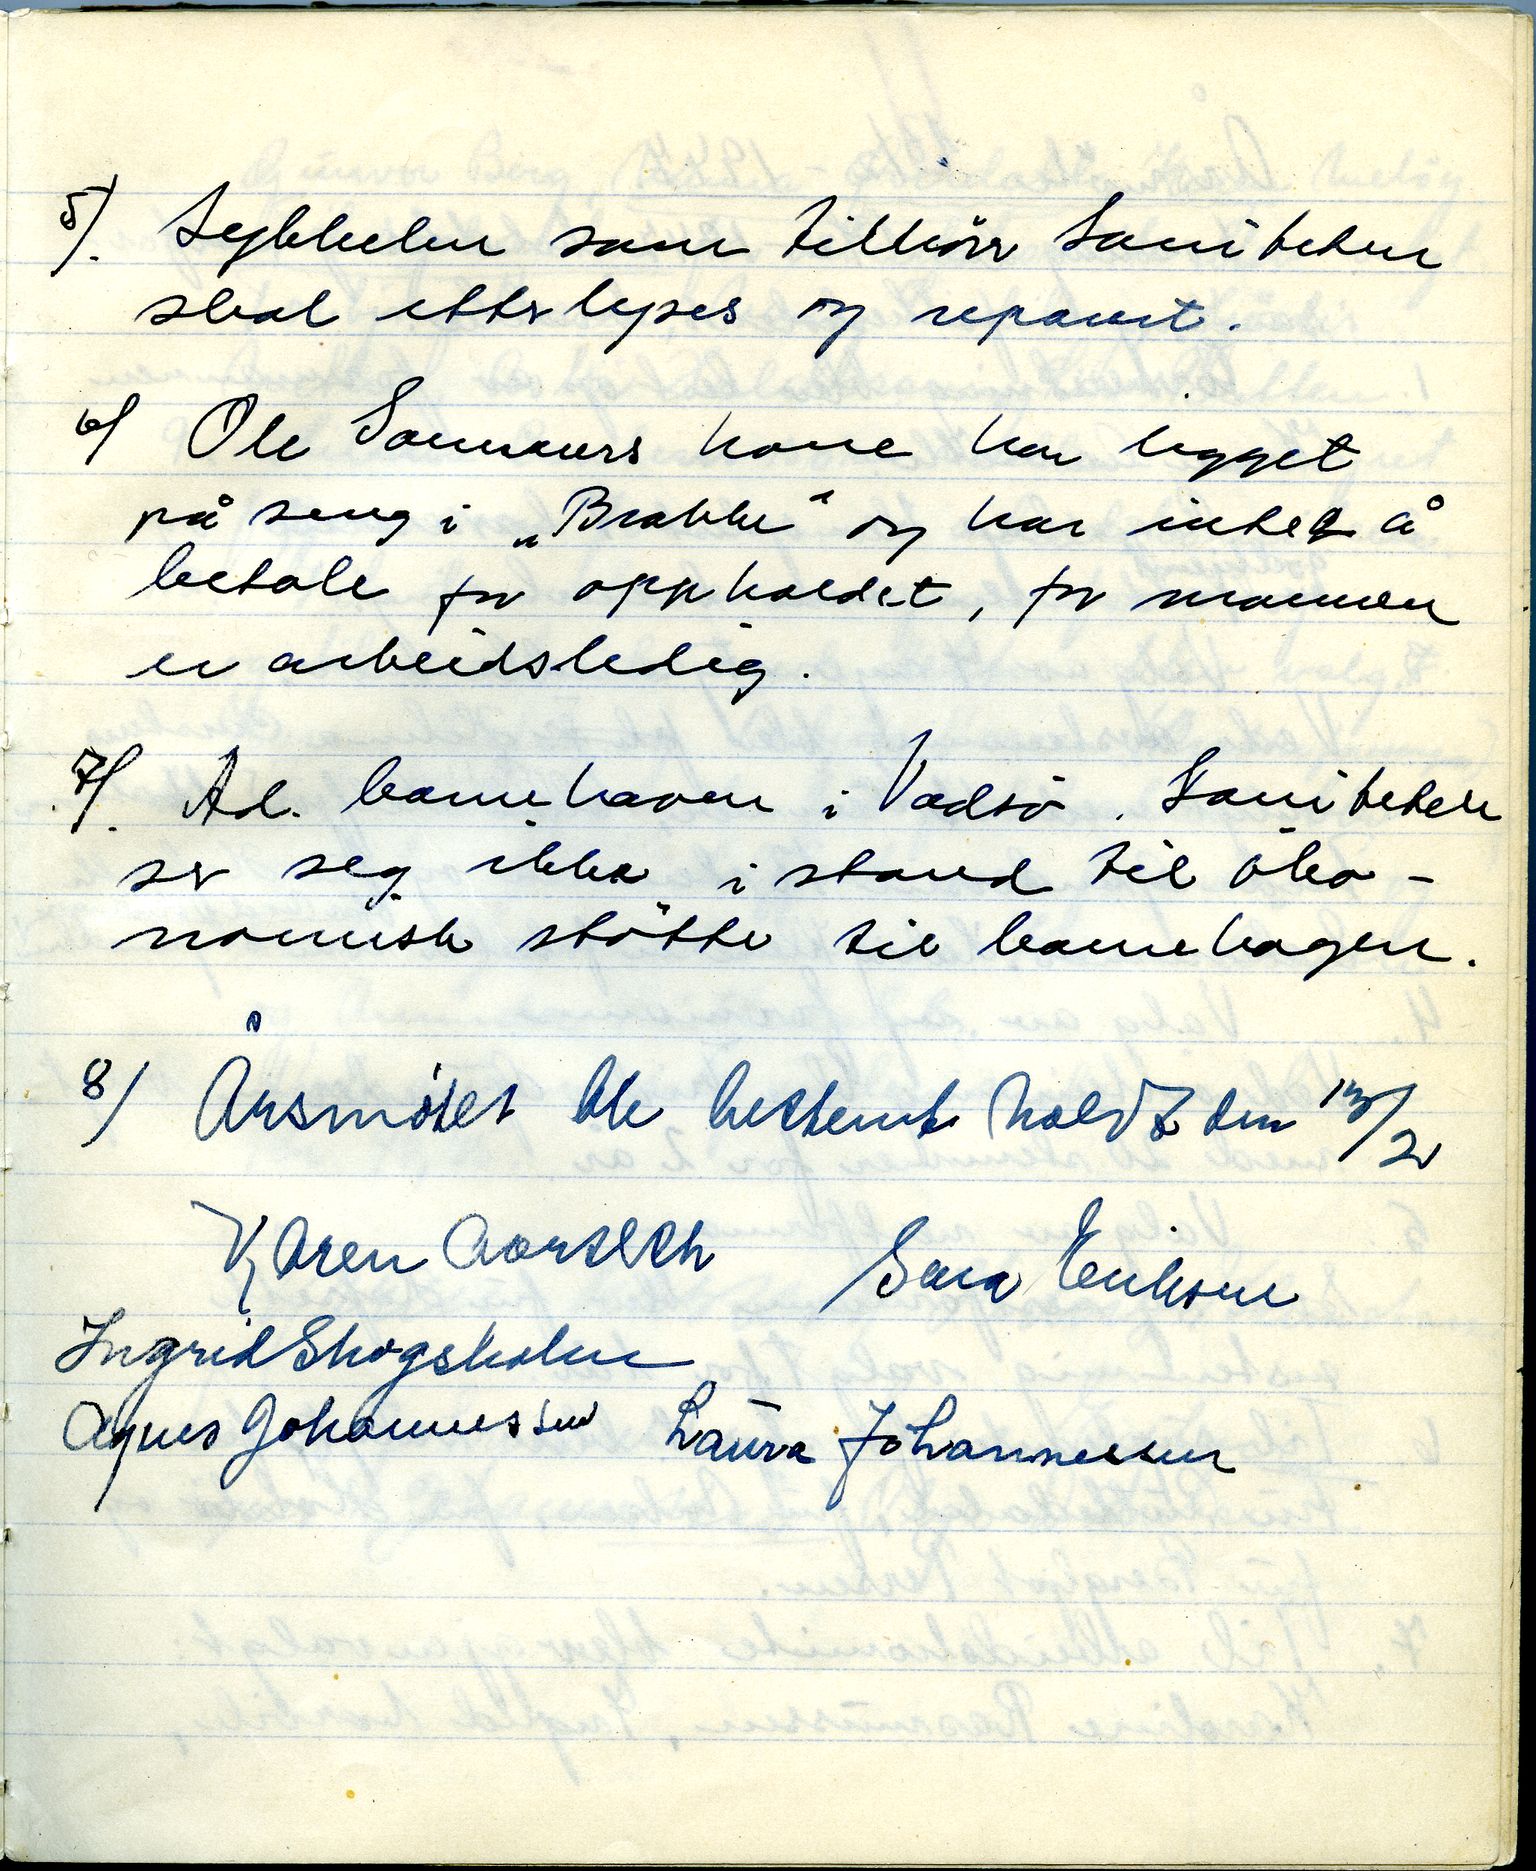 5/. Sykkelen som tilhörer Saniteten
skal etterlyses og reparert.
6/ Ole Sammuers kone har ligget
på seng i „Brakke" og har intet å
betale for oppholdet, for mannen
er arbeidsledig.
7/. Ad. barnehaven i Vadsö. Saniteten
ser seg ikke i stand til öko-
nomisk stötte til barnehagen.
8/ Årsmötet ble bestemt holdt den 13/2
Karen Aarseth Sara Eriksen
Ingrid Skogsholm
Agnes Johannessen Laura Johannessen